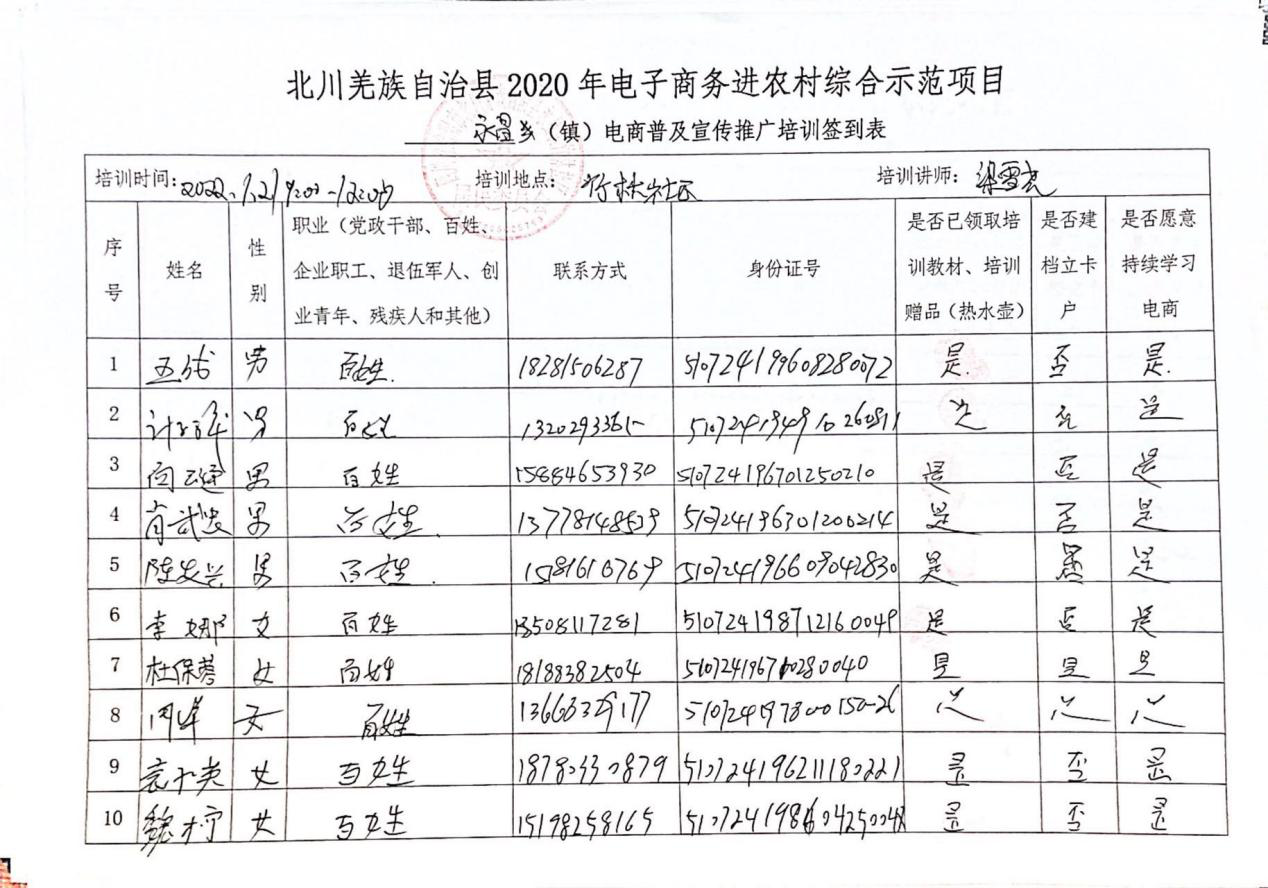 北川羌族自治县 2020 年电子商务进农村综合示范项目
永昌乡（镇）电商普及宣传推广培训签到表
培训时间: 2022.1.21 9:00-12:00 培训地点: 竹林社区 培训讲师: 梁雪亮
序号 姓名 性别 职业（党政干部、百姓、企业职工、退伍军人、创业青年、残疾人和其他） 联系方式 身份证号 是否已领取培训教材、培训赠品（热水壶） 是否建档立卡户 是否愿意持续学习电商
1 男 百姓. 18281506287 是 否 是
2 男 百姓 是 否 是
3 男 百姓 15884653930 510724196701250210 是 否 是
4 男 百姓 510724196301200214 是 否 是
5 陈发兴 男 百姓 是 是
6 李娜 女 百姓 13508117281 510724198712160049 是 否 是
7 杜保蓉 女 百姓 18188382504 是 是 是
8 女 百姓
9 女 百姓 18783330879 510724196211180221 是 否 是
10 女 百姓 15198258165 是 否 是